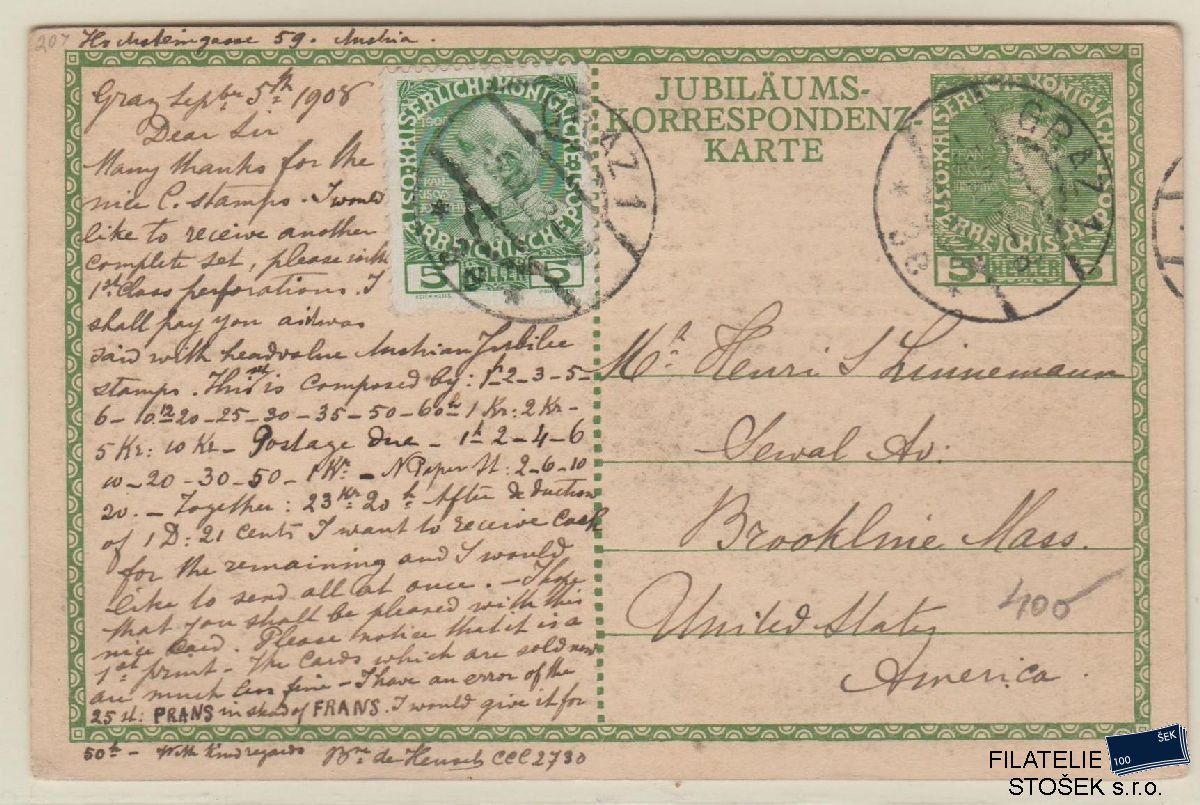 207 Hochsteingasse 59. Austria.
Graz Septbre 5th 1908
Dear Sir
Many thanks for the
nice C. stamps. I would
like to receive another
complete set, please with
1st Class perforations. I
shall pay you as I was
said with headvalue Austrian Jubilee
stamps. This is composed by: 1h-2-3-5-
6-10-12-20-25-30-35-50-60h 1 Kr: 2 Kr-
5 Kr: 10 Kr- Postage due - 1h 2-4-6
10-20-30-50- 1 Kr. - N Paper St: 2-6-10
20. - Together: 23 Kr 20 h After deduction
of 1 D: 21 cents I want to receive cash
for the remaining and I would
like to send all at once. - I hope
that you shall be pleased with this
nice Card. Please notice that it is a
1st print - The cards which are sold now
are much less fine - I have an error of the
25 st: PRANS instead of FRANS. I would give it for
50h - With kind regards Bne de CCC 2730
KAISERLICHE KÖNIGLICHE
ÖSTERREICHISCHE POST
5 HELLER 5
GRAZ 1
* 3B *
JUBILÄUMS-
KORRESPONDENZ-
KARTE
KAISERLICHE KÖNIGLICHE
ÖSTERREICHISCHE POST
5 HELLER 5
GRAZ 1
* 3B *
Mr. Henri S Linnemann
Sewal Av.
Brookline Mass.
United States
America.
400
FILATELIE
STOŠEK s.r.o.
100 ŠEK